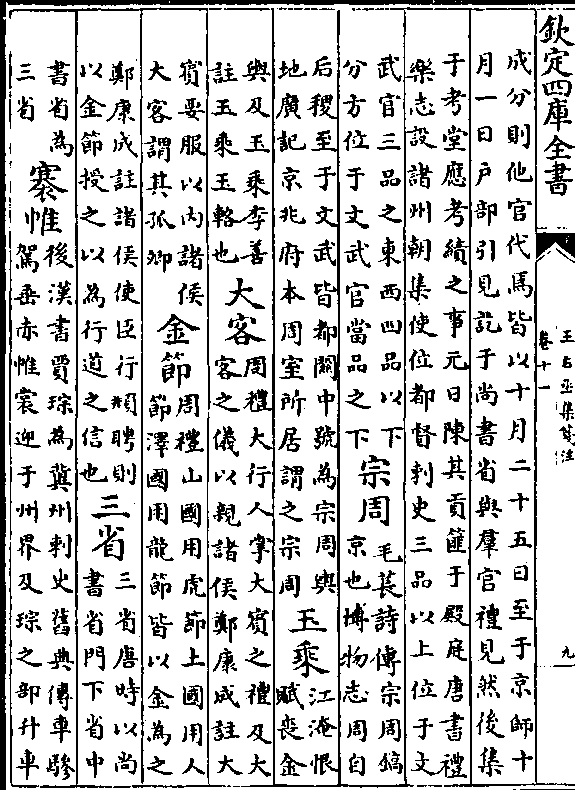 欽定四庫全書
王右丞集箋注
卷十一
九
成分則他官代焉皆以十月二十五日至于京師十
月一日戶部引見訖于尚書省與羣官禮見然後集
于考堂應考績之事元日陳其貢篚于殿庭唐書禮
樂志設諸州朝集使位都督刺史三品以上位于文
武官三品之東西四品以下
分方位于文武官當品之下
宗周
毛萇詩傳宗周鎬
京也博物志周自
后稷至于文武皆都關中號為宗周輿
地廣記京兆府本周室所居謂之宗周
玉乘
江淹恨
賦喪金
輿及玉乘李善
註玉乘玉輅也
大客
周禮大行人掌大賓之禮及大
客之儀以親諸侯鄭康成註大
賓要服以内諸侯
大客謂其孤卿
金節
周禮山國用虎節土國用人
節澤國用龍節皆以金為之
鄭康成註諸侯使臣行頫聘則
以金節授之以為行道之信也
三省
三省唐時以尚
書省門下省中
書省為
三省
褰帷
後漢書賈琮為冀州刺史舊典傳車驂
駕垂赤帷裳迎于州界及琮之部升車